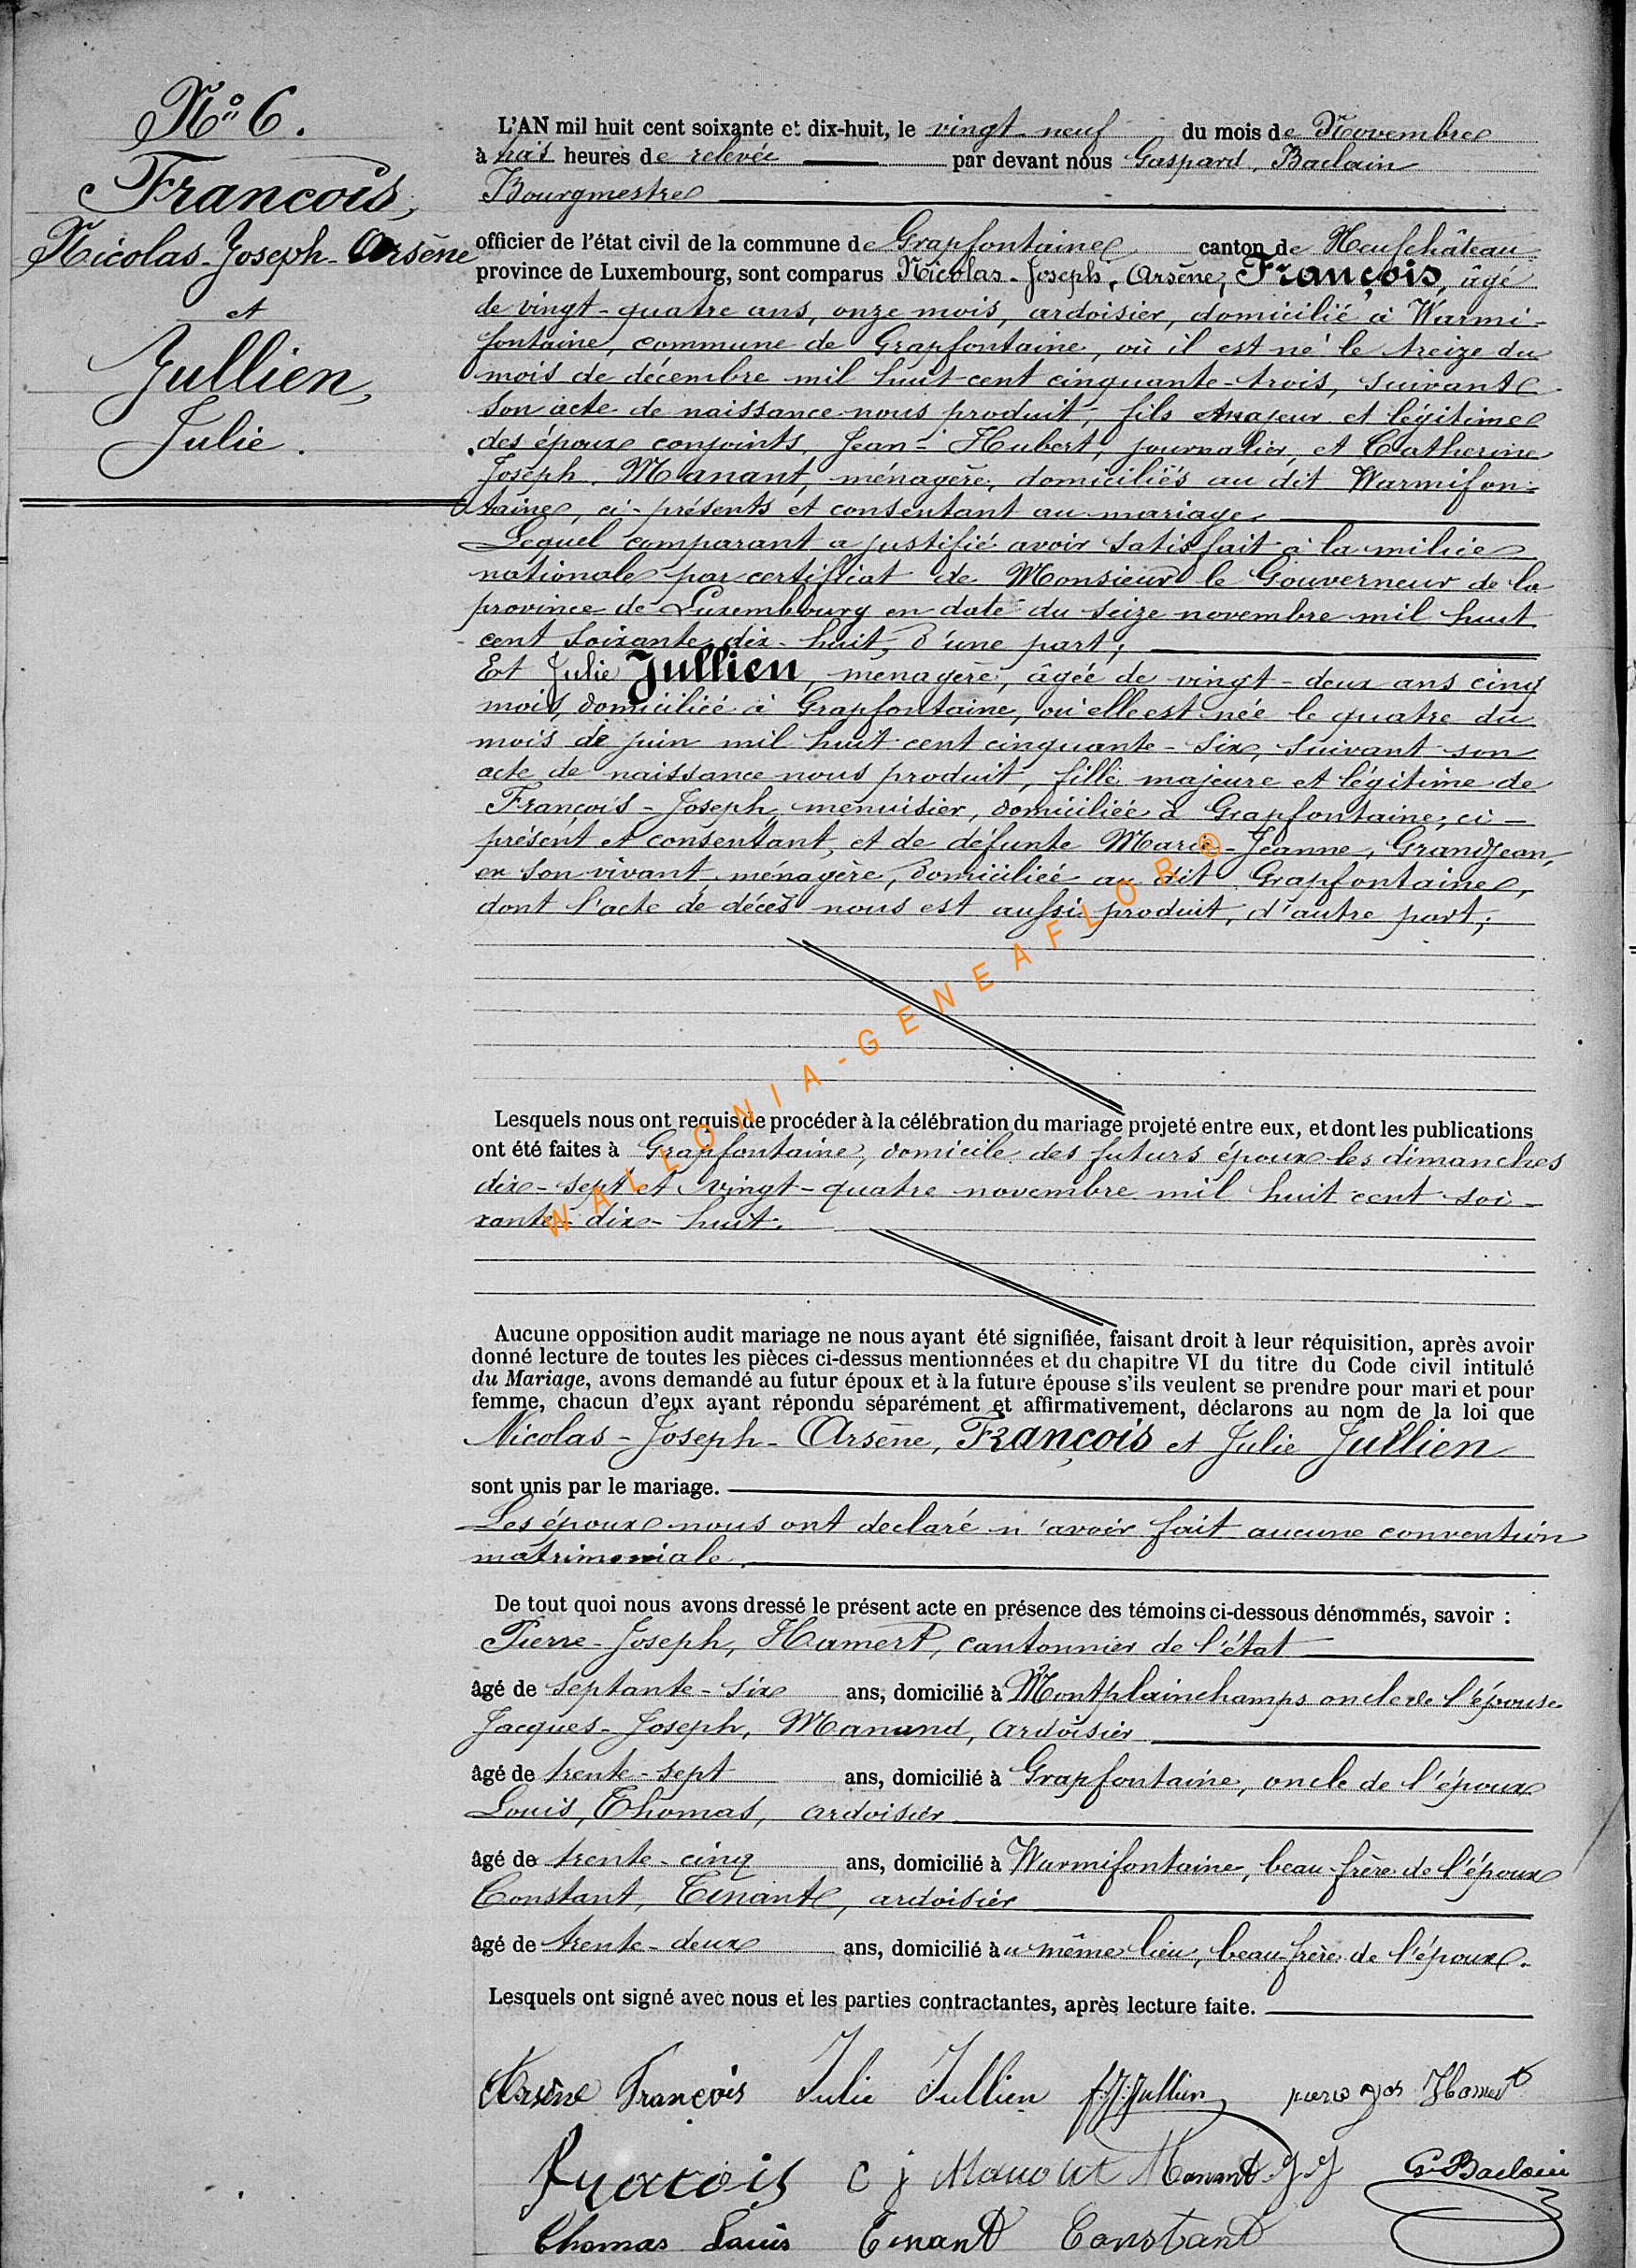 N° 6.
François,
Nicolas-Joseph-Arsène
et
Jullien,
Julie.
L'AN mil huit cent soixante et dix-huit, le vingt-neuf du mois de Novembre
à trois heures de relevée par devant nous Gaspard, Baclain
Bourgmestre
officier de l'état civil de la commune de Grapfontaine canton de Neufchâteau
province de Luxembourg, sont comparus Nicolas-Joseph, Arsène, François, âgé
de vingt-quatre ans, onze mois, ardoisier, domicilié à Warmi-
fontaine, commune de Grapfontaine, où il est né le treize du
mois de décembre mil huit cent cinquante-trois, suivant
son acte de naissance nous produit, fils majeur et légitime
des époux conjoints, Jean-Hubert, journalier, et Catherine
Joseph, Manant, ménagère, domiciliés au dit Warmifon-
taine, ci-présents et consentant au mariage.
Lequel comparant a justifié avoir satisfait à la milice
nationale par certificat de Monsieur le Gouverneur de la
province de Luxembourg en date du seize novembre mil huit
cent soixante-dix-huit, d'une part;
Et Julie Jullien, ménagère, âgée de vingt-deux ans cinq
mois, domiciliée à Grapfontaine, où elle est née le quatre du
mois de juin mil huit cent cinquante-six, suivant son
acte de naissance nous produit, fille majeure et légitime de
François-Joseph, menuisier, domiciliée à Grapfontaine, ci-
présent et consentant, et de défunte Marie-Jeanne, Grandjean,
en son vivant ménagère, domiciliée au dit Grapfontaine,
dont l'acte de décès nous est aussi produit, d'autre part;
WALLONIA-GENEAFLOR ®
Lesquels nous ont requis de procéder à la célébration du mariage projeté entre eux, et dont les publications
ont été faites à Grapfontaine, domicile des futurs époux les dimanches
dix-sept et vingt-quatre novembre mil huit cent soi-
xante-dix-huit.
Aucune opposition audit mariage ne nous ayant été signifiée, faisant droit à leur réquisition, après avoir
donné lecture de toutes les pièces ci-dessus mentionnées et du chapitre VI du titre du Code civil intitulé
du Mariage, avons demandé au futur époux et à la future épouse s'ils veulent se prendre pour mari et pour
femme, chacun d'eux ayant répondu séparément et affirmativement, déclarons au nom de la loi que
Nicolas-Joseph-Arsène, François et Julie Jullien
sont unis par le mariage.
Les époux nous ont declaré n'avoir fait aucune convention
matrimoniale.
De tout quoi nous avons dressé le présent acte en présence des témoins ci-dessous dénommés, savoir :
Pierre-Joseph, Hamert, cantonnier de l'état
âgé de septante-six ans, domicilié à Montplainchamps oncle de l'épouse
Jacques-Joseph, Manand, ardoisier
âgé de trente-sept ans, domicilié à Grapfontaine, oncle de l'époux
Louis, Thomas, ardoisier
âgé de trente-cinq ans, domicilié à Warmifontaine, beau-frère de l'époux
Constant, Tinant, ardoisier
âgé de trente-deux ans, domicilié au même lieu, beau-frère de l'époux.
Lesquels ont signé avec nous et les parties contractantes, après lecture faite.
Arsène François Julie Jullien f.J.Jullien
François c j Manant Manant J.J G. Baclain
Thomas Louis Tinant Constant